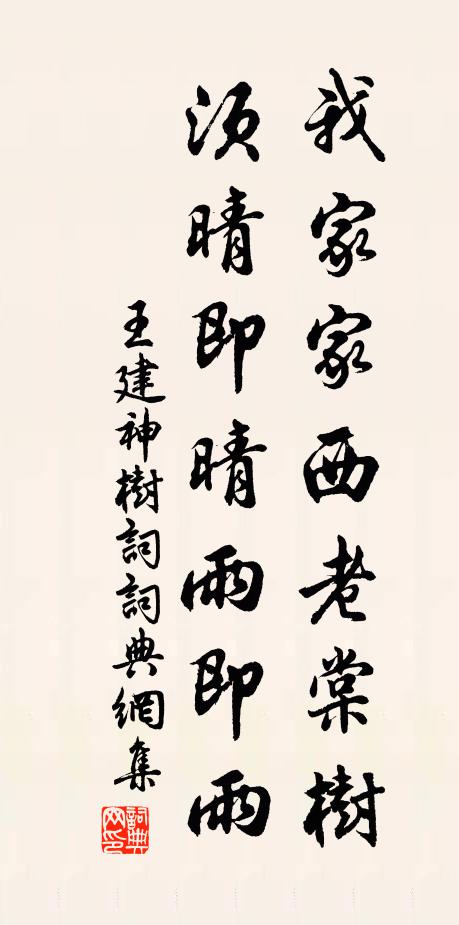 我家家西老棠樹
須晴即晴雨即雨
王建神樹詞詞典網集
詞典網印